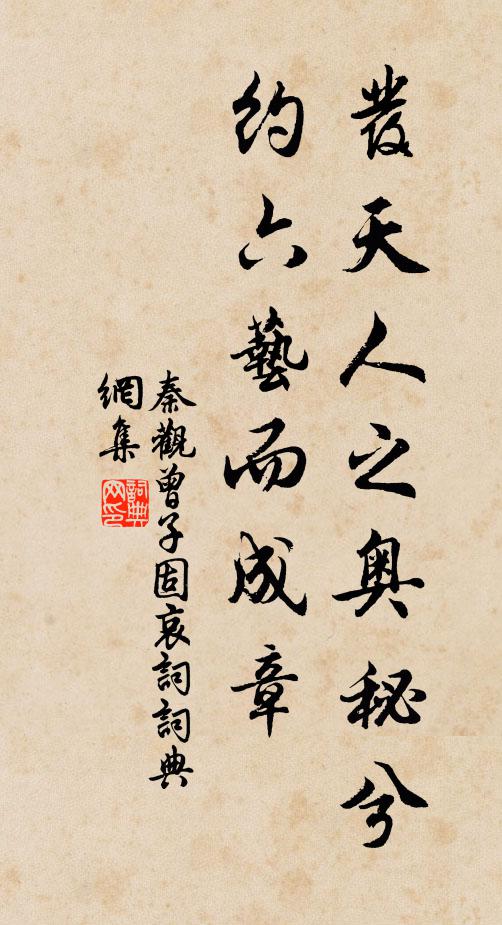 發天人之奥秘兮
約六藝而成章
秦觀曾子固哀詞詞典
網集
詞典网印